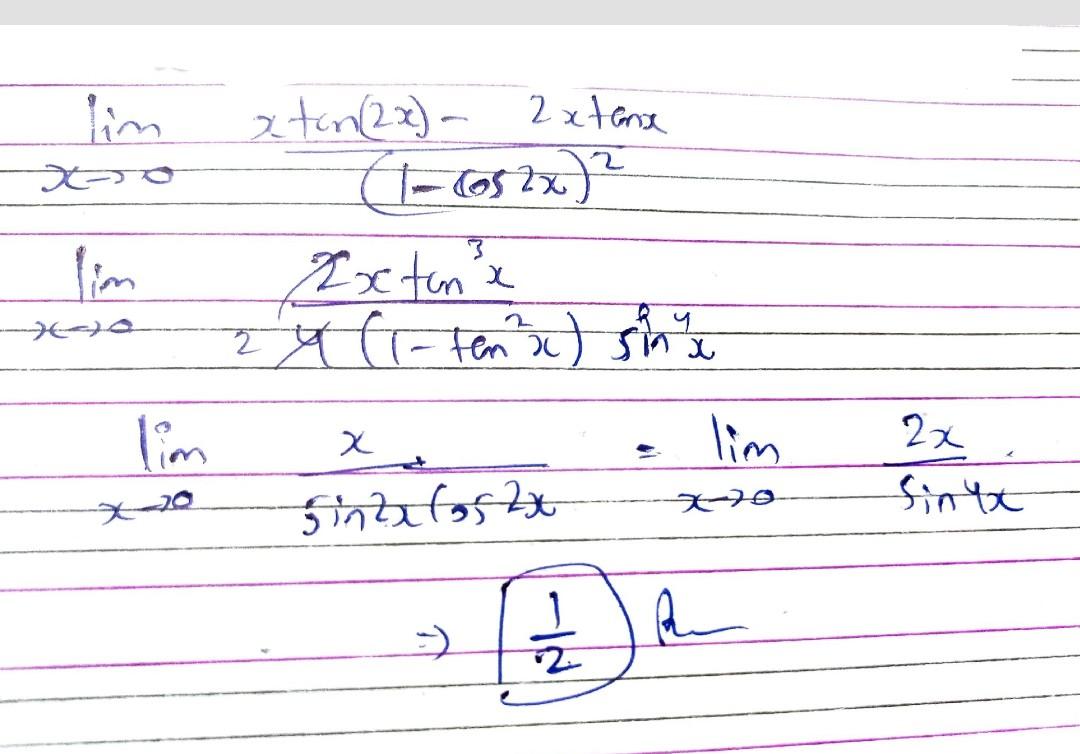 lim x→0 (x tan(2x) - 2x tanx) / (1 - cos 2x)²
lim x→0 2x tan³x / 2 4 (1 - tan²x) sin⁴x
lim x→0 x / sin2x Cos 2x = lim x→0 2x / Sin4x
⇒ 1/2